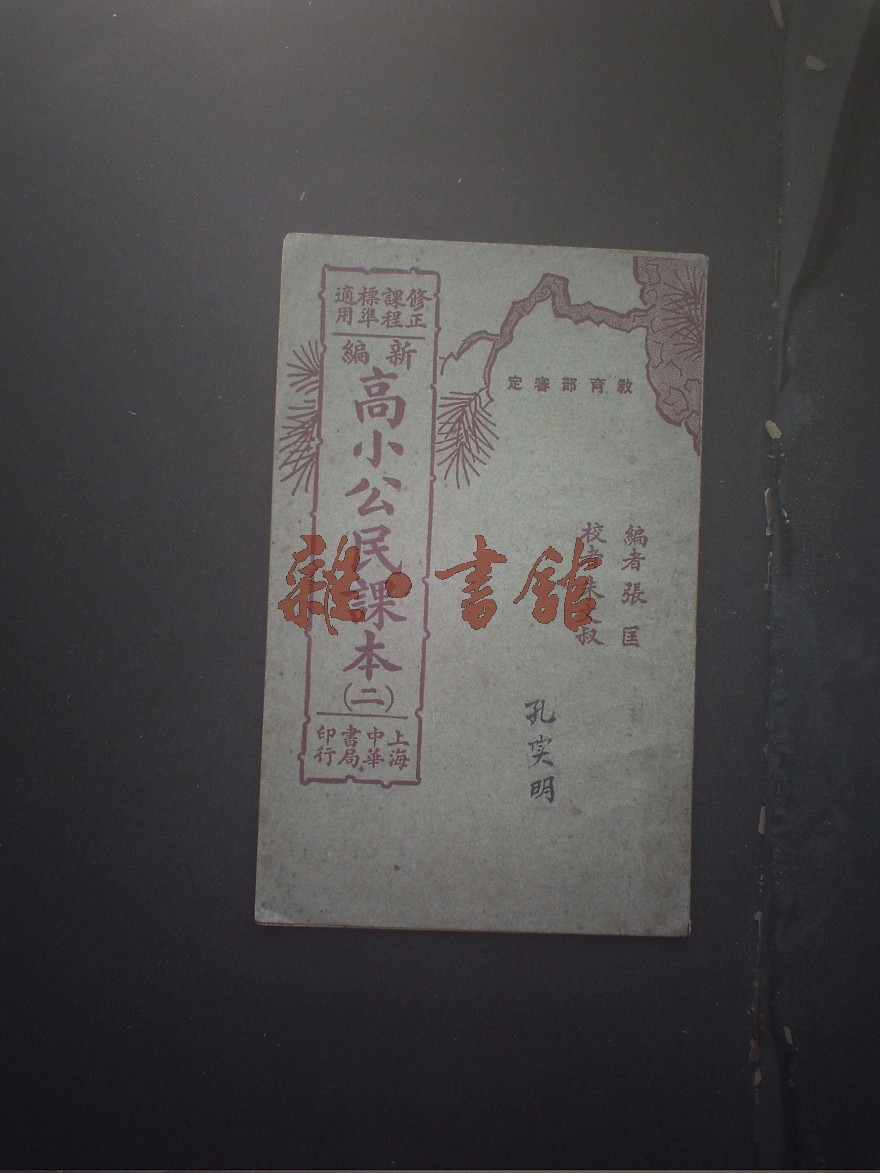 教育部審定
編者張匡
校者朱文叔
修正課程標準適用
新編
高小公民課本
(二)
上海中華書局印行
孔实明
雜·書館